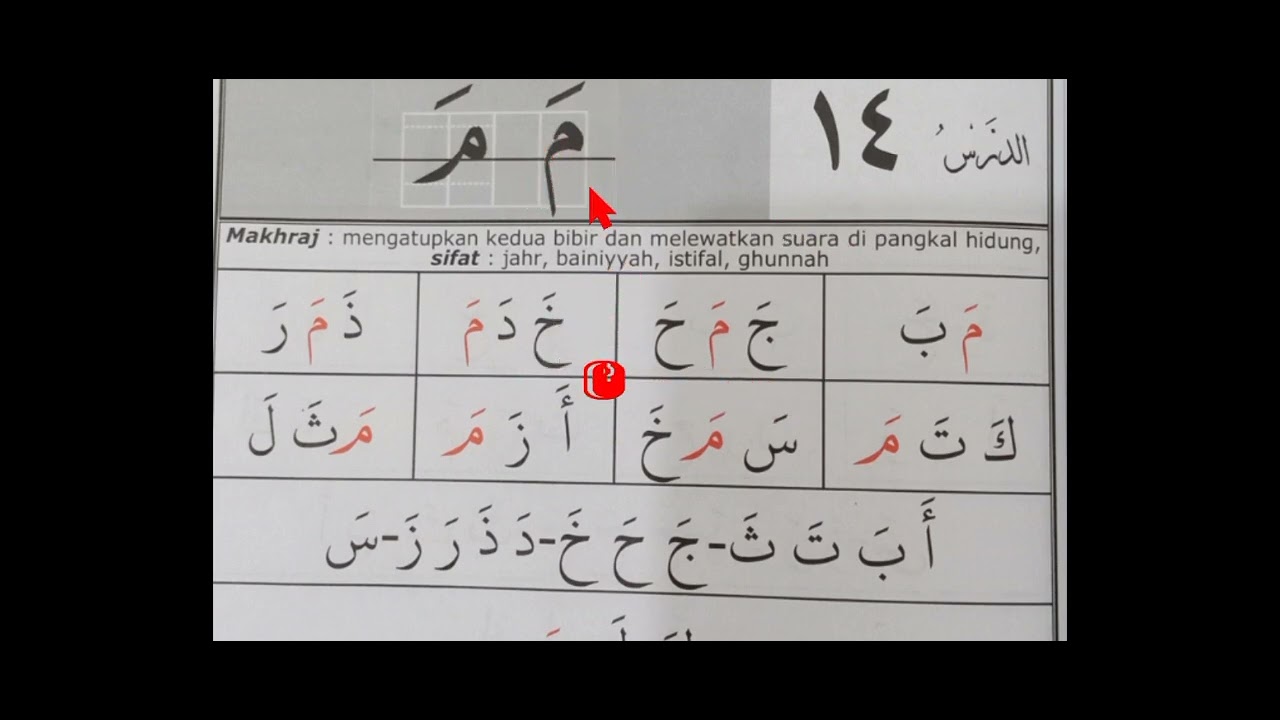 الدَّرْسُ ١٤ مَ مَ
Makhraj : mengatupkan kedua bibir dan melewatkan suara di pangkal hidung,
sifat : jahr, bainiyyah, istifal, ghunnah
مَ بَ جَ مَ حَ خَ دَ مَ ذَ مَ رَ
كَ تَ مَ سَ مَ خَ أَ زَ مَ مَ ثَ لَ
أَ بَ تَ ثَ-جَ حَ خَ-دَ ذَ رَ زَ-سَ